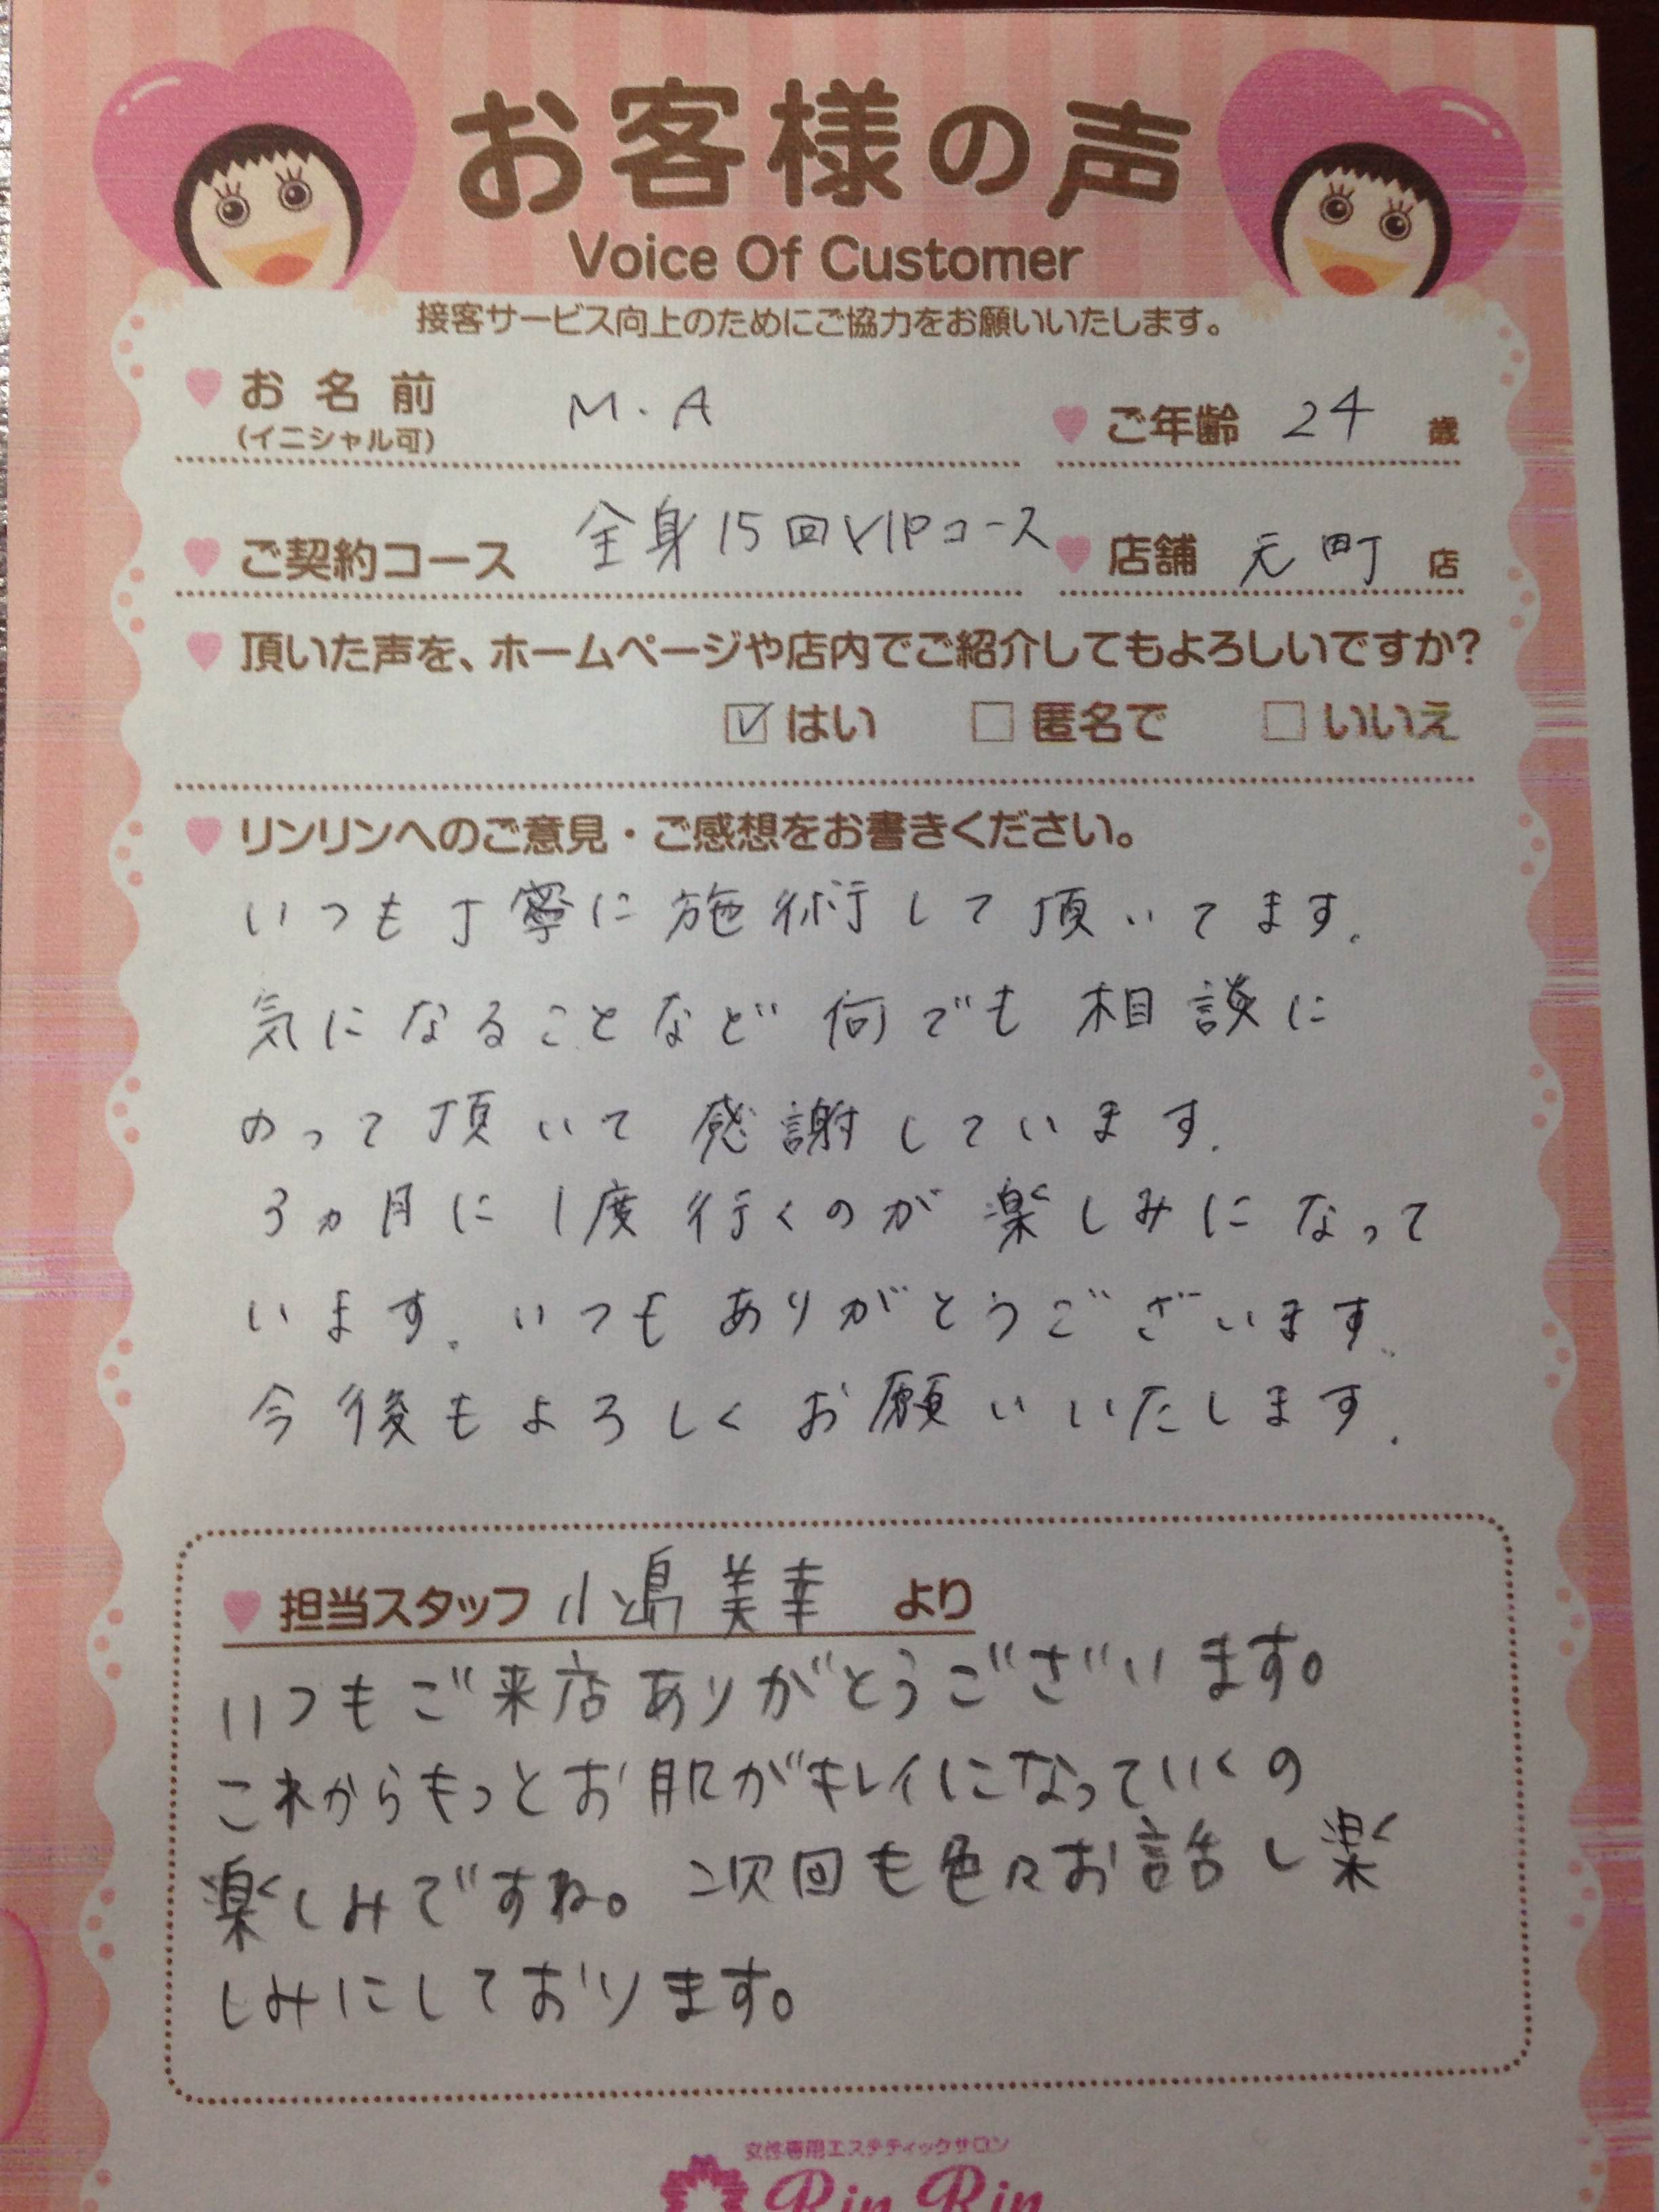 お客様の声
Voice Of Customer
接客サービス向上のためにご協力をお願いいたします。
お名前 M.A ご年齢 24 歳
(イニシャル可)
ご契約コース 全身15回VIPコース 店舗 元町 店
頂いた声を、ホームページや店内でご紹介してもよろしいですか?
☑はい □匿名で □いいえ
リンリンへのご意見・ご感想をお書きください。
いつも丁寧に施術して頂いてます。
気になることなど何でも相談に
のって頂いて感謝しています。
3ヵ月に1度行くのが楽しみになって
います。いつもありがとうございます。
今後もよろしくお願いいたします。
担当スタッフ 小島美幸 より
いつもご来店ありがとうございます。
これからもっとお肌がキレイになっていくの
楽しみですね。次回も色々お話し楽
しみにしております。
女性専用エステティックサロン
Rin Rin